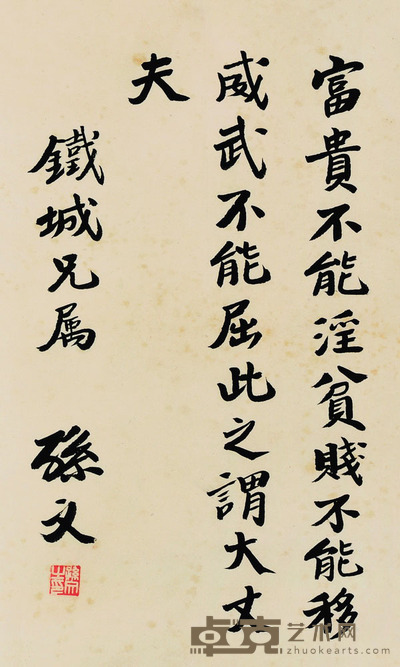 富貴不能淫貧賤不能移
威武不能屈此之謂大丈
夫
鐵城兄属
孫文
孫文之印
卓克艺术网
zhuokearts.com